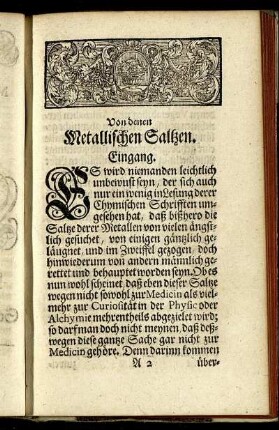 Von denen
Metallischen Saltzen.
Eingang.
ES wird niemanden leichtlich
unbewust seyn, der sich auch
nur ein wenig in Lesung derer
Chymischen Schrifften um-
gesehen hat, daß bißhero die
Saltze derer Metallen von vielen ängst-
lich gesuchet, von einigen gäntzlich ge-
läugnet, und im Zweiffel gezogen, doch
hinwiederum von andern männlich ge-
rettet und behauptet worden seyn. Ob es
nun wohl scheinet, daß eben dieser Saltze
wegen nicht sowohl zur Medicin als viel-
mehr zur Curiosität in der Physic oder
Alchymie mehrentheils abgezielet wird;
so darf man doch nicht meynen, daß deß-
wegen diese gantze Sache gar nicht zur
Medicin gehöre. Denn darinn kommen
A 2 über-